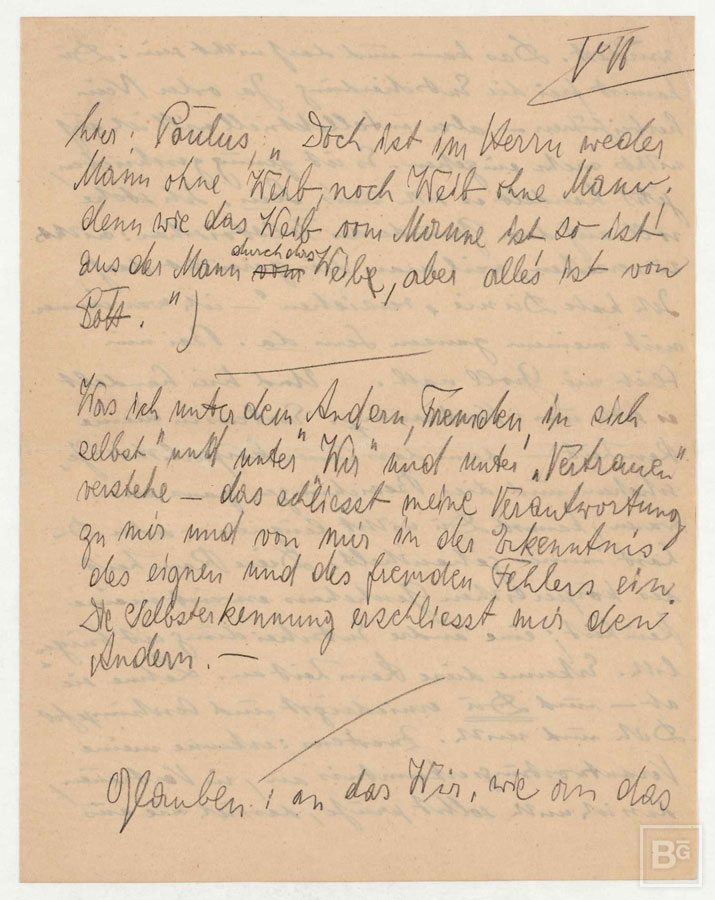 hier: Paulus, „Doch ist im Herrn weder
Mann ohne Weib, noch Weib ohne Mann;
denn wie das Weib vom Manne ist so ist
aus der Mann durch das vom Weibe, aber alles ist von
Gott.")
Was ich unter dem Andern, Fremden, in sich
selbst" und unter „Wir" und unter „Vertrauen"
verstehe – das schliesst meine Verantwortung
zu mir und von mir in der Erkenntnis
des eignen und des fremden Fehlers ein.
Die Selbsterkennung erschliesst mir den
Andern. –
Glauben: an das Wir, wie an das
BG